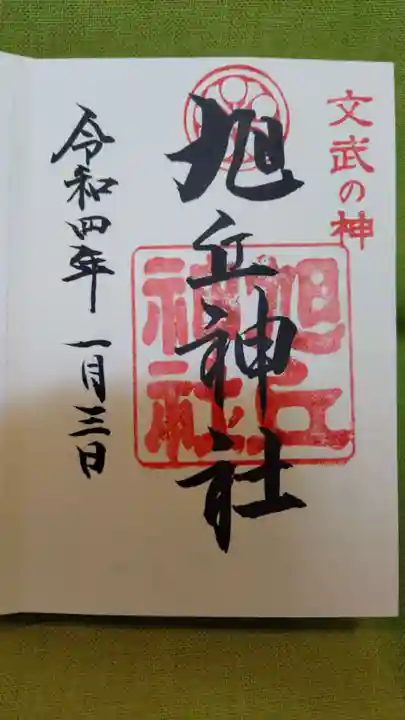 文武の神
旭丘神社
旭丘
神社
令和四年 一月三日